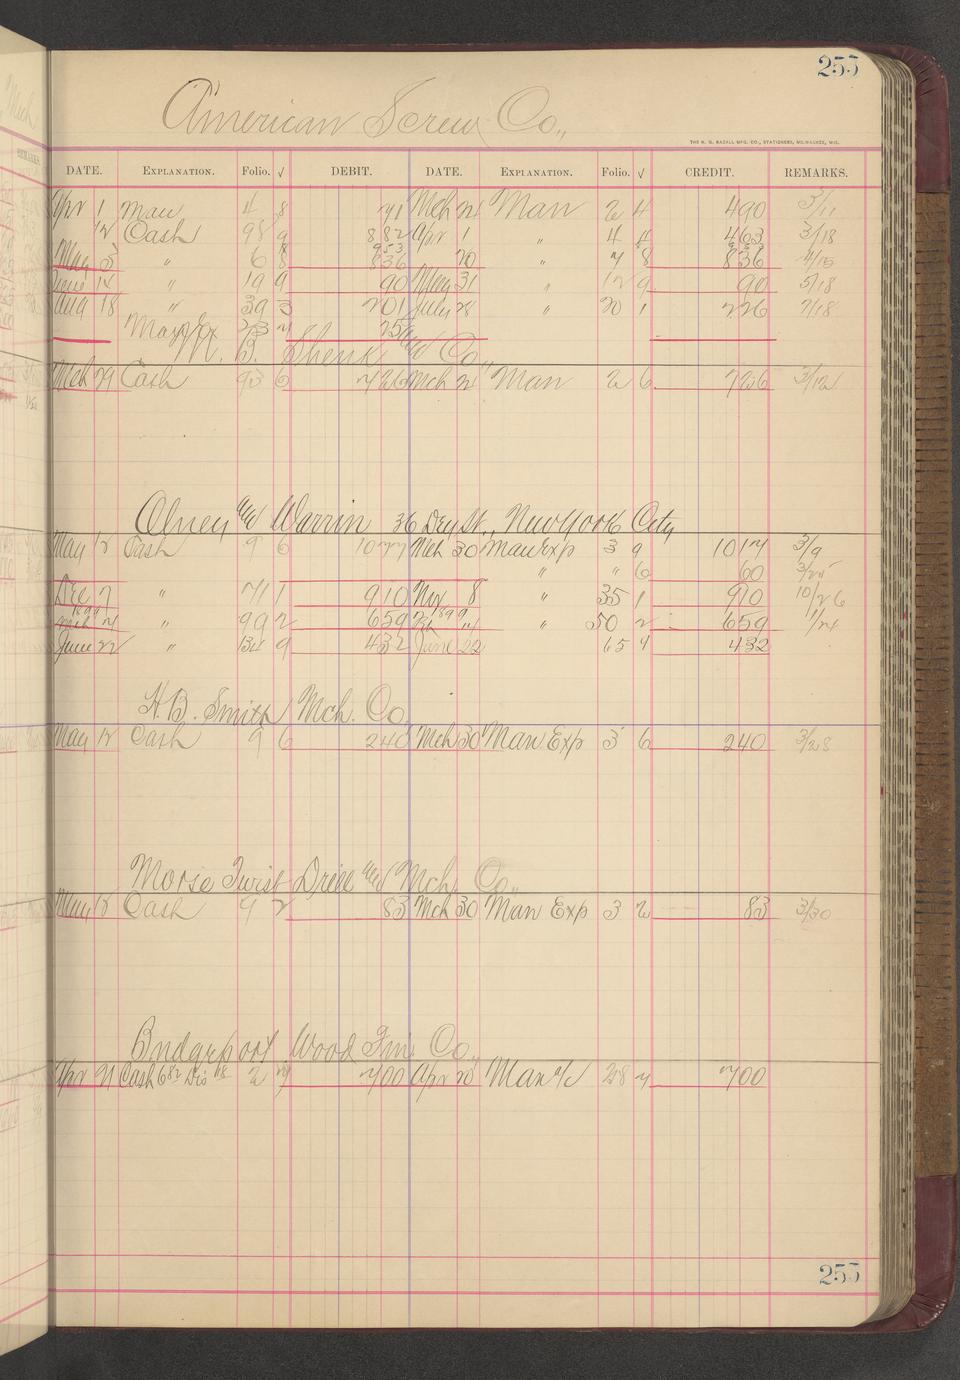 255
American Screw Co.,
THE H. G. RAZALL MFG. CO., STATIONERS, MILWAUKEE, WIS.
DATE. EXPLANATION. Folio. √ DEBIT. DATE. EXPLANATION. Folio. √ CREDIT. REMARKS.
Apr 1 Man 4 8 71 Mch 21 Man 2 4 490 3/11
12 Cash 98 9 882 Apr 1 " 4 4 463 3/18
953 953
May 5 " 6 8 836 20 " 7 8 836 4/15
June 14 " 19 9 90 May 31 " 12 9 90 5/18
Aug 18 " 39 3 201 July 28 " 20 1 226 7/18
23 25
B. Shenk Co.,
Mch 29 Cash 95 6 726 Mch 21 Man 2 6 726 3/12
Olney and Warrin 36 Dey St. New York City
May 12 Cash 9 6 1077 Mch 30 Man Exp 3 9 1017 3/9
" " 6 60 3/25
Dec 7 " 71 1 910 Nov 8 " 35 1 910 10/26
1899 1899
Mch 4 " 99 2 659 Feb 14 " 50 2 659 1/24
June 22 " 134 9 432 June 22 65 9 432
H. B. Smith Mch. Co.
May 12 Cash 9 6 240 Mch 30 Man Exp 3 6 240 3/28
Morse Twist Drill and Mch. Co.,
May 12 Cash 9 2 83 Mch 30 Man Exp 3 2 83 3/30
Bridgeport Wood Fin. Co.,
Apr 21 Cash 6 82 Dis 18 2 7 700 Apr 20 Man a/c 28 7 700
255